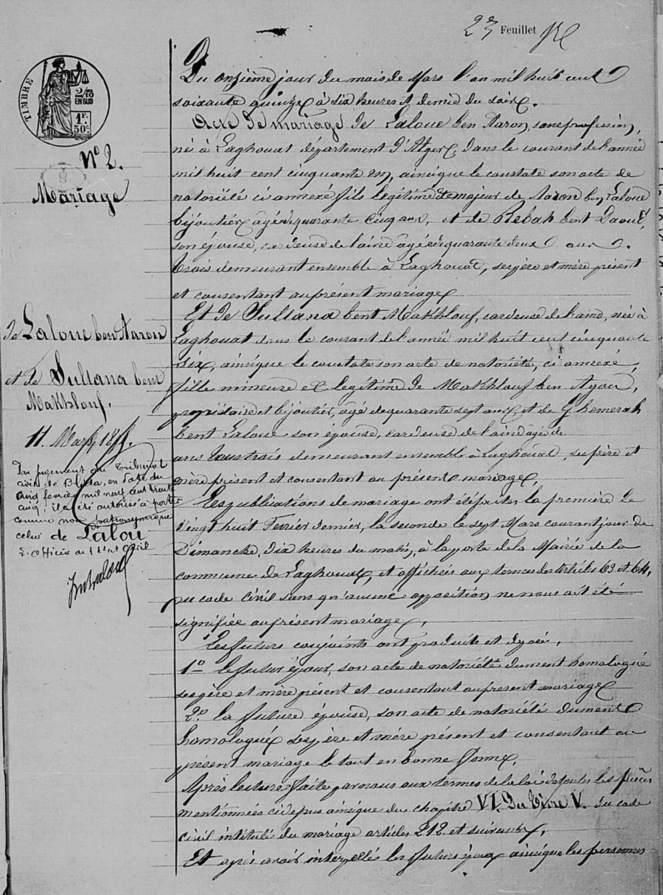 23 Feuillet
TIMBRE
2/10
EN SUS
1F.
50c
N° 2.
Mariage
de Laloue ben Aaron
et de Sultana bent
Makhlouf.
11. Mars 1875.
Par jugement du Tribunal
civil de Blida, en date du
cinq mil neuf cent trente
cinq, il a été autorisé à porter
comme nom patronymique
celui de Lalou
L'officier de l'Etat Civil
Du onzième jour du mois de Mars l'an mil huit cent
soixante quinze à six heures et demie du soir.
Acte de mariage de Laloue ben Aaron, sans profession,
né à Laghouat département d'Alger, dans le courant de l'année
mil huit cent cinquante un, ainsi que le constate son acte de
notoriété ci annexé fils légitime et majeur de Aaron ben Laloue
bijoutier, agé de quarante cinq ans, et de Rebah bent Daoud,
son épouse, cardeuse de laine agée de quarante deux ans
tous trois demeurant ensemble à Laghouat, ses père et mère présent
et consentant au présent mariage
Et de Sultana bent Makhlouf, cardeuse de laine, née à
Laghouat dans le courant de l'année mil huit cent cinquante
six, ainsi que le constate son acte de notoriété, ci annexé,
fille mineure et légitime de Makhlouf ben
propriétaire et bijoutier, agé de quarante sept ans, et de Ghemerah
bent Laloue son épouse, cardeuse de laine agée de
ans tous trois demeurant ensemble à Laghouat, ses père et
mère présent et consentant au présent mariage,
Les publications de mariage ont été faites la première le
vingt huit Février dernier, la seconde le sept Mars courant jour de
Dimanche, dix heures du matin, à la porte de la Mairie de la
commune de Laghouat, et affichées aux termes des articles 63 et 64,
du code civil sans qu'aucune opposition ne nous ait été
signifiée au présent mariage,
Les futurs conjoints ont produits et déposé,
1° le futur époux, son acte de notoriété dument homologué
ses père et mère présent et consentant au présent mariage
2° la future épouse, son acte de notoriété dument
homologué ses père et mère présent et consentant au
présent mariage le tout en bonne forme,
Après lecture faite par nous aux termes de la loi de toutes les pièces
mentionnées ci dessus ainsi que du chapitre VI. du titre V. du code
civil intitulé du mariage articles 212 et suivants,
Et après avoir interpellé les futurs époux ainsi que les personnes